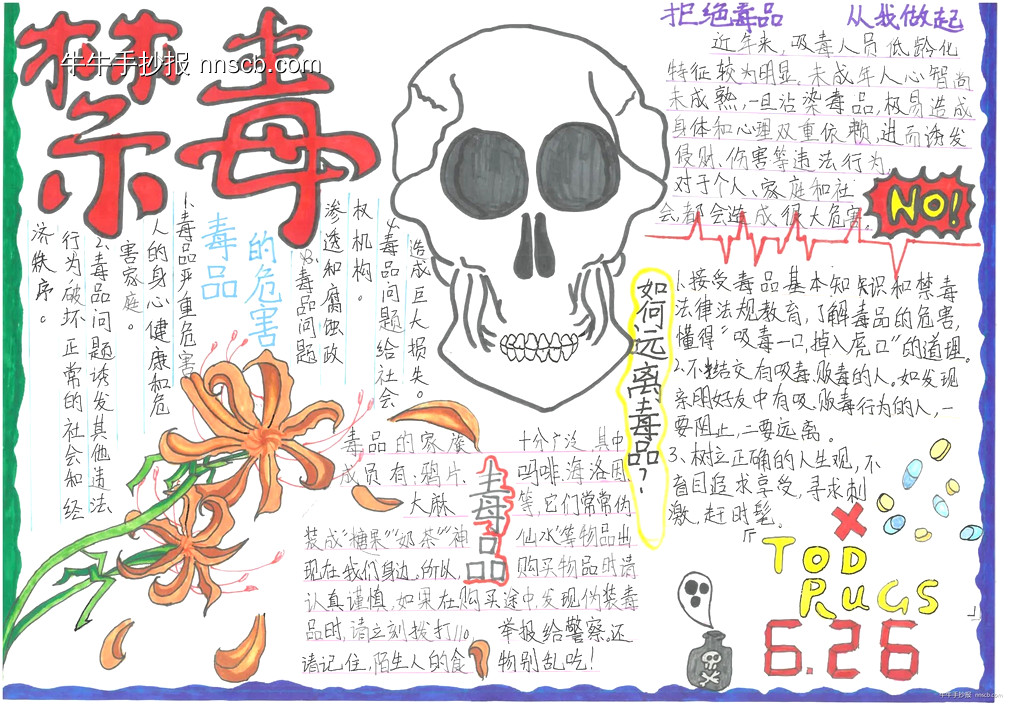 禁毒
牛牛手抄报 nnscb.com
拒绝毒品 从我做起
近年来，吸毒人员低龄化
特征较为明显，未成年人心智尚
未成熟，一旦沾染毒品，极易造成
身体和心理双重依赖，进而诱发
侵财、伤害等违法行为，
对于个人、家庭和社
会都会造成很大危害。
NO!
毒品
的危害
1、毒品严重危害
人的身心健康和危
害家庭。
2、毒品问题诱发其他违法
行为破坏正常的社会和经
济秩序。
3、毒品问题
渗透和腐蚀政
权机构。
4、毒品问题给社会
造成巨大损失。
如何远离毒品？
1、接受毒品基本知识和禁毒
法律法规教育，了解毒品的危害，
懂得“吸毒一口，掉入虎口”的道理。
2、不结交有吸毒、贩毒的人。如发现
亲朋好友中有吸、贩毒行为的人，一
要阻止，二要远离。
3、树立正确的人生观，不
盲目追求享受，寻求刺
激，赶时髦。
毒品
毒品的家族十分广泛，其中
成员有：鸦片、吗啡、海洛因、
大麻等，它们常常伪
装成“糖果”“奶茶”“神仙水”等物品出
现在我们身边。所以，购买物品时请
认真谨慎，如果在购买途中，发现伪装毒
品时，请立刻拨打110，举报给警察，还
请记住，陌生人的食物别乱吃！
『TOD
RUGS』
6.26
牛牛手抄报 nnscb.com